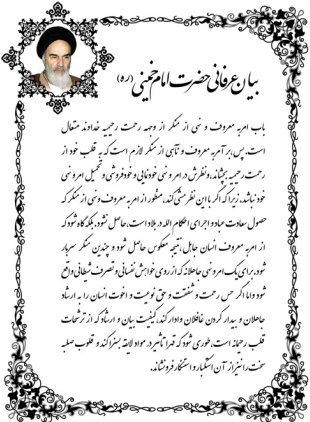 بیان عرفانی حضرت امام خمینی (ره)
باب امر به معروف و نهی از منکر از وجهه رحمت رحیمیه خداوند متعال
است، پس، بر آمر به معروف و ناهی از منکر لازم است که به قلب خود از
رحمت رحیمیه بچشاند و نظرش در امر و نهی خودنمایی و خودفروشی و تحمیل امر و نهی
خود نباشد، زیرا که اگر با این نظر مشی کند، منظور از امر به معروف و نهی از منکر که
حصول سعادت عباد و اجرای احکام الله در بلاد است، حاصل نشود، بلکه گاه شود که
از امر به معروف انسان جاهل، نتیجه معکوس حاصل شود و چندین منکر سربار
شود، برای یک امر و نهی جاهلانه که از روی خواهش نفسانی و تصرف شیطانی واقع
شود و اما اگر حس رحمت و شفقت و حق نوعیت و اخوت انسان را به ارشاد
جاهلان و بیدار کردن غافلان وادار کند، کیفیت بیان و ارشاد که از ترشحات
قلب رحیمانه است، طوری شود که قهرا تأثیر در مواد لایقه بسزا کند و قلوب صلبه
سخت را نیز از آن استکبار و استنکار فرو نشاند.